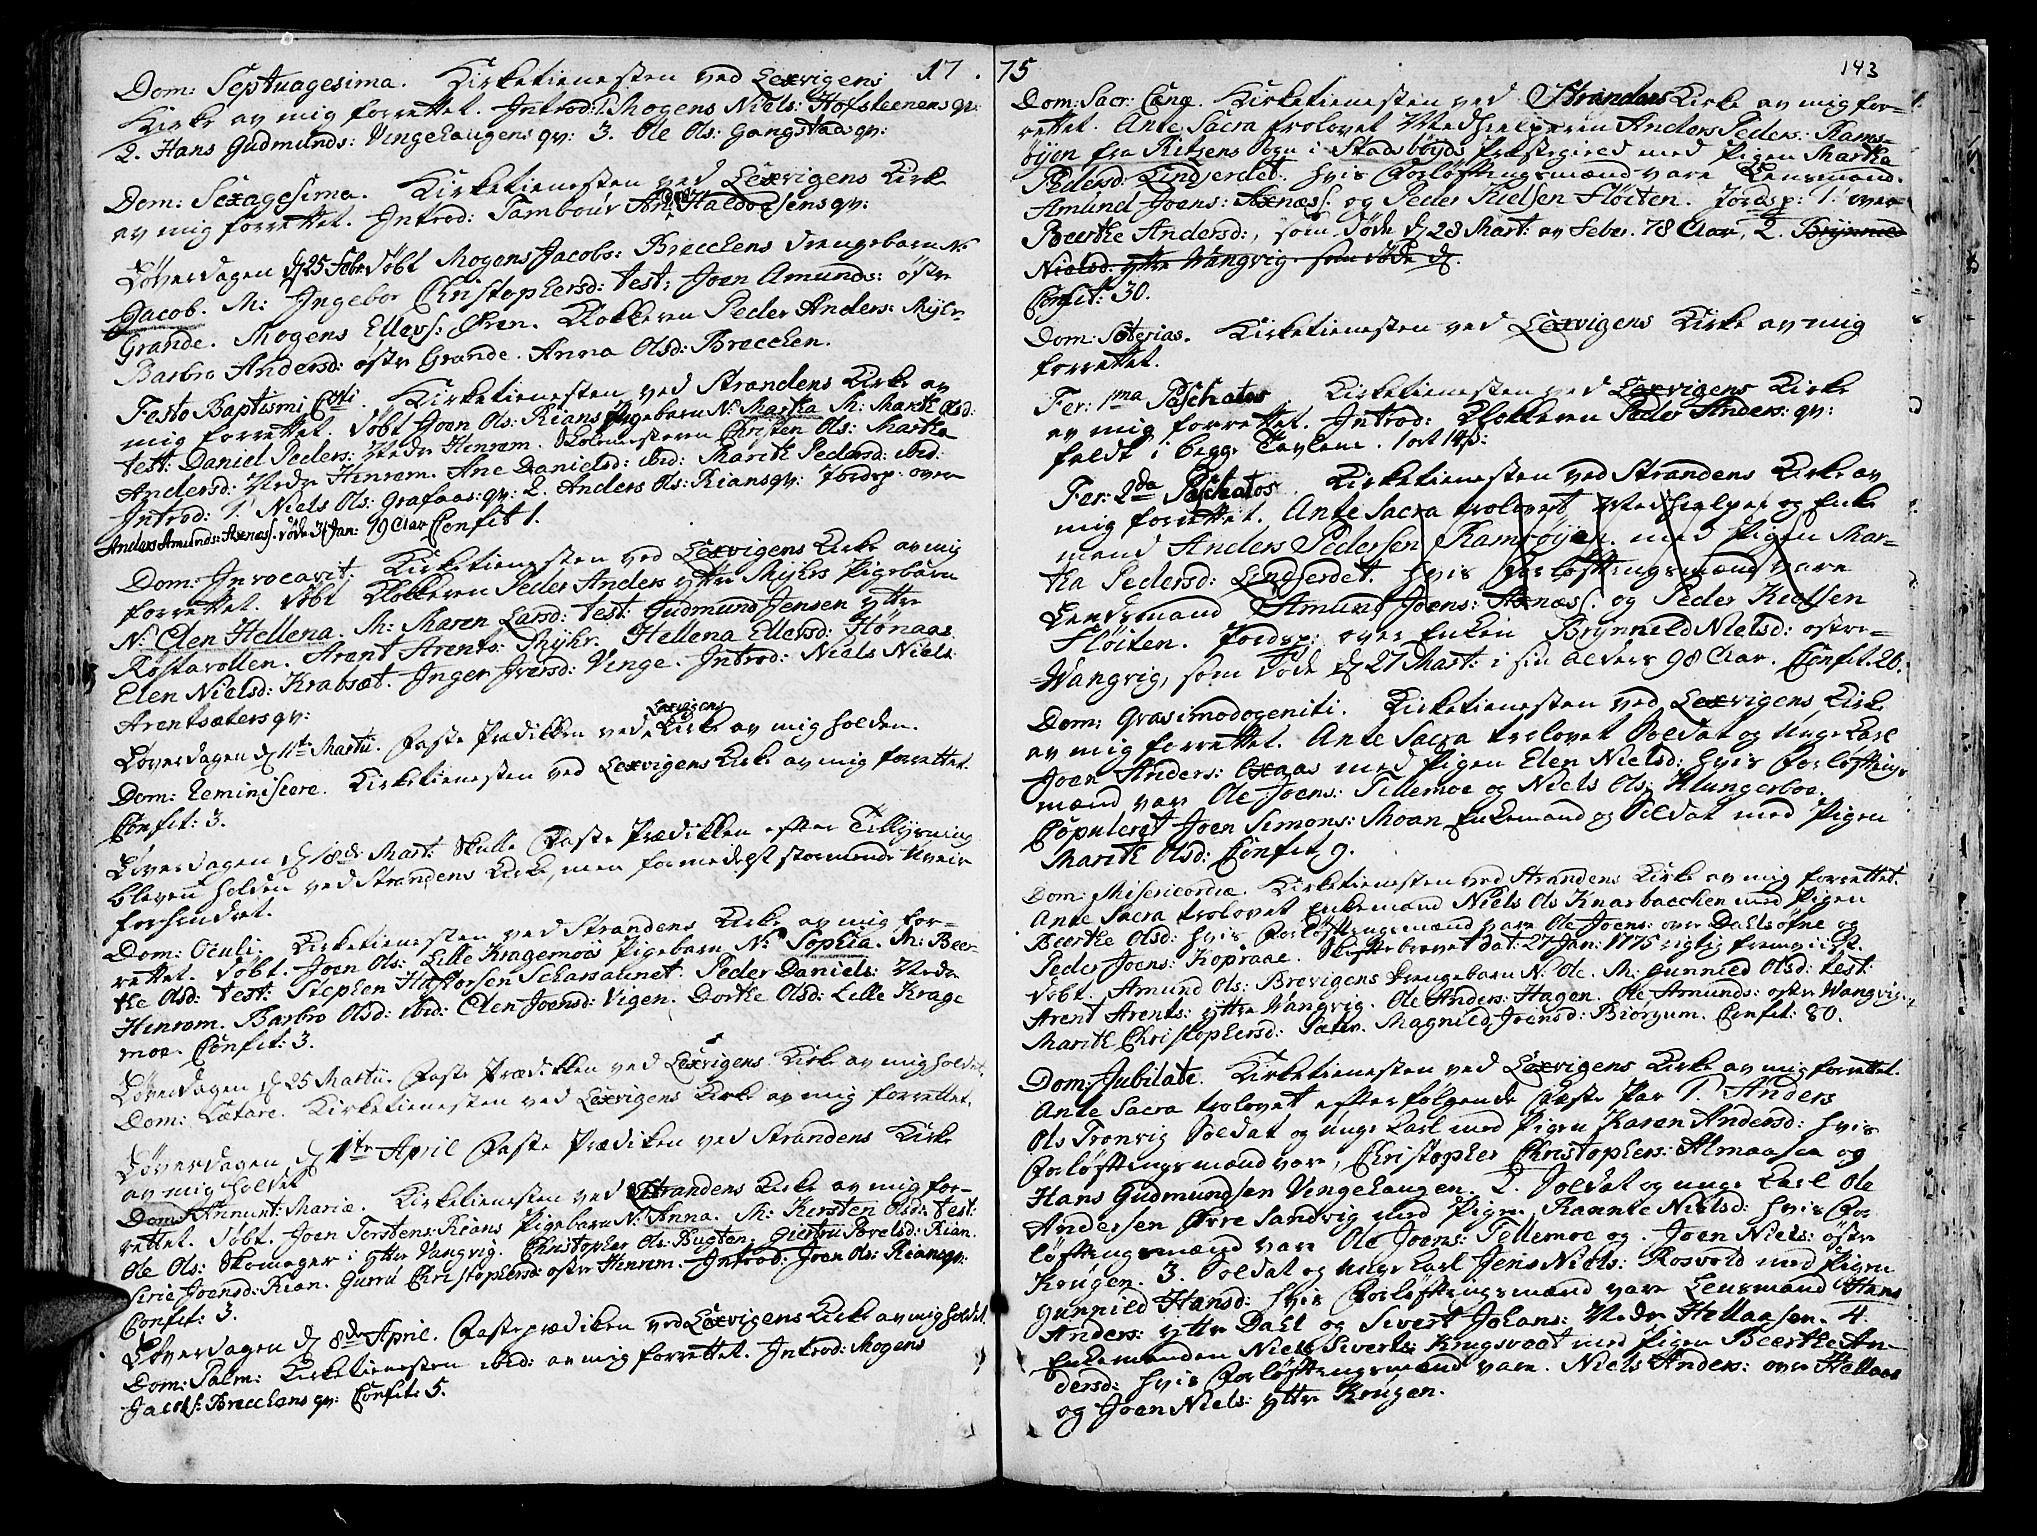 17
Dom: Septuagesima. Kirketienesten ved Lexvigens
Kirke av mig forrettet. Introd: 1. Mogens Niels: Hofsteenens qv:
2. Hans Gudmunds: Vingehaugens qv: 3. Ole Ols: Gangstads qv:
Dom: Sexagesima. Kirketienesten ved Lexvigens Kirke
av mig forrettet. Introd: Tambour Haldorsens qv:
Løverdagen d 25 Febr. døbt Mogens Jacobs: Brecchens drengebarn N:
Jacob. M: Ingebor Christophersd: test: Joen Amunds: østre
Grande. Mogens Ellevs: Øren. Klokkeren Peder Anders: Myhr-
Barbro Andersd: østre Grande. Anna Olsd: Brecchen.
Festo Baptismi Xsti. Kirketienesten ved Strandens Kirke av
mig forrettet. døbt Joen Ols: Rians Pigebarn N: Martha M: Marith Olsd:
test: Daniel Peders: Nedre Henrem. Skolemesteren Christen Ols: Martha
Andersd: Nedre Henrem. Ane Danielsd: ibid: Marith Pedersd: ibid:
Introd: 1. Niels Ols: Grafaas: qv: 2. Anders Ols: Rians qv: Jordsp: over
Anders Amunds: Axnæs. døde 31 Jan: 19 Aar Confit 1.
Dom: Invocavit: Kirketienesten ved Lexvigens Kirke av mig
forrettet. døbt Klokkeren Peder Anders yttre Myhrs Pigebarn
N: Elen Hellena. M: Maren Larsd: test: Gudmund Jensen ytre
Røstavollen. Arent Arents: Myhr. Hellena Ellevsd: Hønaas
Elen Nielsd: Krabsæt. Inger Iversd: Vinge. Introd: Niels Niels:
Arentsæters qv:
Løverdagen d 11te Martii. Faste Prædikken ved Lexvigens Kirke av mig holden.
Dom: Reminiscere. Kirketienesten ved Lexvigens Kirke av mig forrettet.
Confit: 3.
Løverdagen d 18de Mart: Skulle Faste Prædikken efter Tillysning
bleven holden ved Strandens Kirke, men formedelst stormende Uveir
forhindret.
Dom: Oculi. Kirketienesten ved Strandens Kirke av mig for-
rettet. døbt. Joen Ols: Lille Kragemoes Pigebarn N: Sophia. M: Beer-
the Olsd: test: Stephen Hastorsen Scharsaunet. Peder Daniels: Nedre
Henrem. Barbro Olsd: ibid: Elen Joensd: Vigen. Dorthe Olsd: Lille Krage
moe. Confit: 3.
Løverdagen d 25 Martii. Faste Prædikken ved Lexvigens Kirke av mig holdet.
Dom: Lætare. Kirketienesten ved Lexvigens Kirke av mig forrettet.
Løverdagen d 1te April Faste Prædiken ved Strandens Kirke
av mig holdet
Dom: Annunt: Mariæ. Kirketienesten ved Strandens Kirke av mig for-
rettet. døbt. Joen Torstens: Rians Pigebarn N: Anna. M: Kirsten Olsd: test:
Ole Ols: Skomager i ytre Vangvig. Christopher Ols: Bugten. Giertrú Torelsd: Rian.
Sirie Joensd: Rian. Gurrú Christophersd: østre Henrem. Introd: Joen Ols: Rians qv:
Confit: 3.
Løverdagen d 8de April. Faste prædiken ved Lexvigens Kirke av mig holdet.
Dom: Palm: Kirketienesten ibid: av mig forrettet. Introd: Mogens
Jacobs: Brecchens qv: Confit: 5.
75
143
Dom: Sacr: Cænæ. Kirketienesten ved Strandens Kirke av mig for-
rettet. Ante Sacra trolovet Medhielperen Anders Peders: Rams-
øyen fra Ritzens Sogn i Stadsbøyds Præstegield med Pigen Martha
Pedersd: Lindserdet. hvis Forløftningsmænd vare Lensmand
Amund Joens: Axnæs. og Peder Kielsen Fløiten. Jordsp: 1. over
Beerthe Andersd:, som døde d 28 Mart: av Feber. 78 Aar, 2. Brynnild
Nielsd: ytre Vangvig. som døde d.
Confit: 30.
Dom: Soterias. Kirketienesten ved Lexvigens Kirke av mig
forrettet.
Fer: 1ma Paschatos. Kirketienesten ved Lexvigens Kirke
av mig forrettet. Introd: Klokkeren Peder Anders: qv:
faldt i begge Tavlene. 1 ort 14 s:
Fer: 2da Paschatos. Kirketienesten ved Strandens Kirke av
mig forrettet. Ante Sacra trolovet Medhielper og Enke
mand Anders Pedersen Ramsøyen. med Pigen Mar-
tha Pedersd: Lindserdet. hvis Forløftningsmænd vare
Lensmand Amund Joens: Axnæs. og Peder Kielsen
Fløiten. Jordsp: over Enken Brynnild Nielsd: østre-
Wangvig, som døde d 27 Mart: i sin alders 98 Aar. Confit. 26.
Dom: Qvasimodogeniti. Kirketienesten ved Lexvigens Kirke
av mig forrettet. Ante Sacra trolovet Soldat og Unge Karl
Joen Anders: Oxaas med Pigen Elen Nielsd: hvis Forløftnings
mænd vare Ole Joens: Tellemoe og Niels Ols: Klungerboe.
Copuleret Joen Simons: Moan Enkemand og Soldat med Pigen
Marith Olsd: Confit 9.
Dom: Misericordiæ. Kirketienesten ved Strandens Kirke av mig forrettet.
Ante Sacra trolovet Enkemand Niels Ols Knarbacchen med Pigen
Beerthe Olsd: hvis Forløftningsmænd vare Ole Joens: over Dahlsøne og
Peder Joens: Kopraae. Skiftebrevet dat: 27 Jan: 1775 rigtig fremviist.
døbt. Amund Ols: Brevigens drengebarn N: Ole. M: Gunnild Olsd: test:
Arent Arents: ytre Vangvig. Ole Anders: Hagen. Ole Amunds: østre Wangvig.
Marith Christophersd: Sæter. Magnild Joensd: Biorgum. Confit: 80.
Dom: Jubilate. Kirketienesten ved Lexvigens Kirke av mig forrettet.
Ante Sacra trolovet efterfølgende Fæste Par 1. Anders
Ols Tronvig Soldat og Unge Karl med Pigen Karen Andersd: hvis
Forløftningsmænd vare, Christopher Christophers: Almaasen og
Hans Gudmundsen Vingehaugen. 2. Soldat og unge Karl Ole
Andersen Øvre Sandvig med Pigen Rannte Nielsd: hvis For
løftningsmænd vare Ole Joens: Tellemoe og Joen Niels: østre
Kougen. 3. Soldat og Unge Karl Jens Niels: Rosvold med Pigen
Gunnild Hansd: hvis Forløftningsmænd vare Lensmand Hans
Anders: ytre Dahl og Sivert Johans: Nedre Hellaasen. 4.
Enkemanden Niels Siverts: Krugsvedt med Pigen Beerthe An-
dersd: hvis Forløftningsmænd vare. Niels Anders: over Hellaas
og Joen Niels: ytre Kougen.